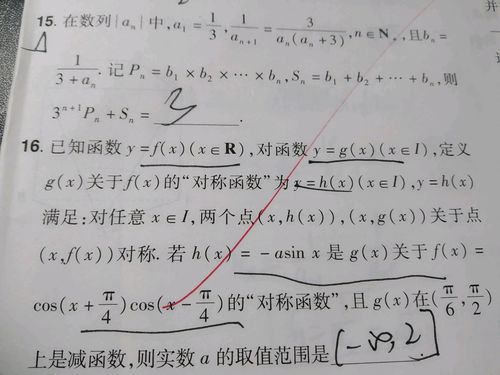 15. 在数列{aₙ}中,a₁ = 1/3, 1/aₙ₊₁ = 3/(aₙ(aₙ+3)), n∈N₊,且bₙ =
1/(3+aₙ). 记 Pₙ = b₁ × b₂ × ⋯ × bₙ, Sₙ = b₁ + b₂ + ⋯ + bₙ,则
3ⁿ⁺¹Pₙ + Sₙ = 3.
16. 已知函数 y=f(x)(x∈R),对函数 y=g(x)(x∈I),定义
g(x)关于f(x)的“对称函数”为 y=h(x)(x∈I),y=h(x)
满足:对任意 x∈I,两个点(x,h(x)),(x,g(x))关于点
(x,f(x))对称. 若 h(x) = -asin x 是 g(x)关于 f(x) =
cos(x + π/4)cos(x - π/4)的“对称函数”,且 g(x)在(π/6, π/2)
上是减函数,则实数 a 的取值范围是 [-∞,2]